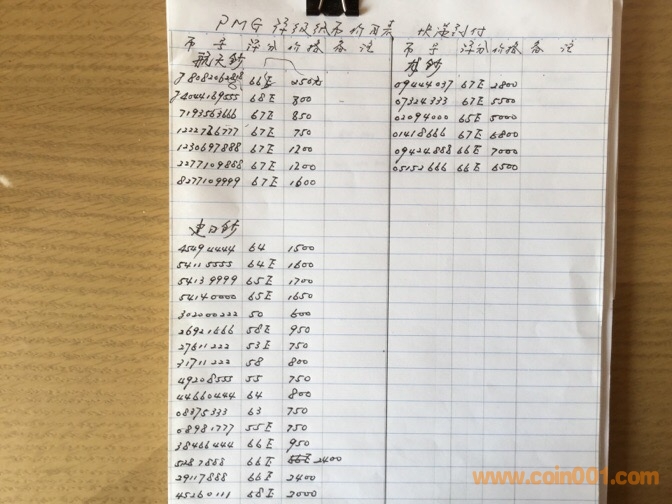 PMG 评级纸币价目表 快递到付
币字 评分 价格 备注
航天钞
J8082062818 66E 250元
J4044189555 68E 800
7193563666 67E 850
1222776777 67E 750
1230697888 67E 1200
2277109888 67E 1200
8277109999 67E 1600
建国钞
45494444 64 1500
54115555 64E 1600
54139999 65E 1700
54140000 65E 1650
302000222 50 600
26921666 58E 950
27611222 53E 750
31711222 58 800
49208555 55 750
44660444 64 800
08375333 63 750
08981777 55E 750
38466444 66E 950
5287888 66E 2400
29117888 66E 2400
45260111 68E 2000
币字 评分 价格 备注
09444037 67E 2800
07324333 67E 5500
02094000 65E 5000
01418666 67E 6800
09424888 66E 7000
05152666 66E 6500
www.coin001.com